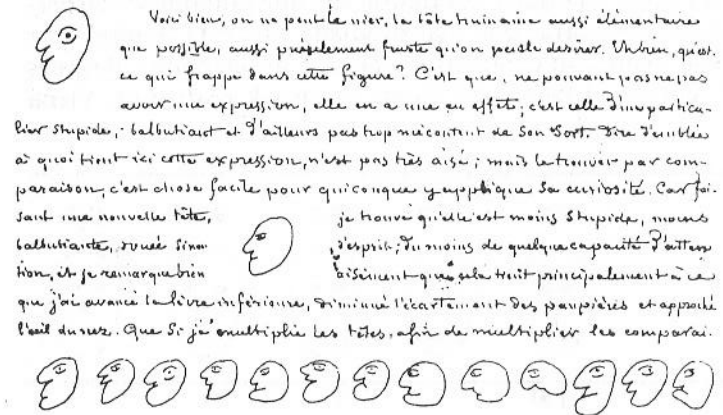 Voici bien, on ne peut le nier, la tête humaine aussi élémentaire
que possible, aussi puérilement fruste qu'on puisse désirer. Eh bien, qu'est-
ce qui frappe dans cette figure? C'est que, ne pouvant pas ne pas
avoir une expression, elle en a une en effet; c'est celle d'un particu-
lier stupide, balbutiant et d'ailleurs pas trop mécontent de son sort. Dire d'emblée
à quoi tient ici cette expression, n'est pas très aisé; mais le trouver par com-
paraison, c'est chose facile pour quiconque y applique sa curiosité. Car fai-
sant une nouvelle tête, je trouve qu'elle est moins stupide, moins
balbutiante, douée sinon d'esprit, du moins de quelque capacité d'atten-
tion, et je remarque bien aisément que cela tient principalement à ce
que j'ai avancé la lèvre inférieure, diminué l'écartement des paupières et approché
l'œil du nez. Que si je multiplie les têtes, afin de multiplier les comparai-